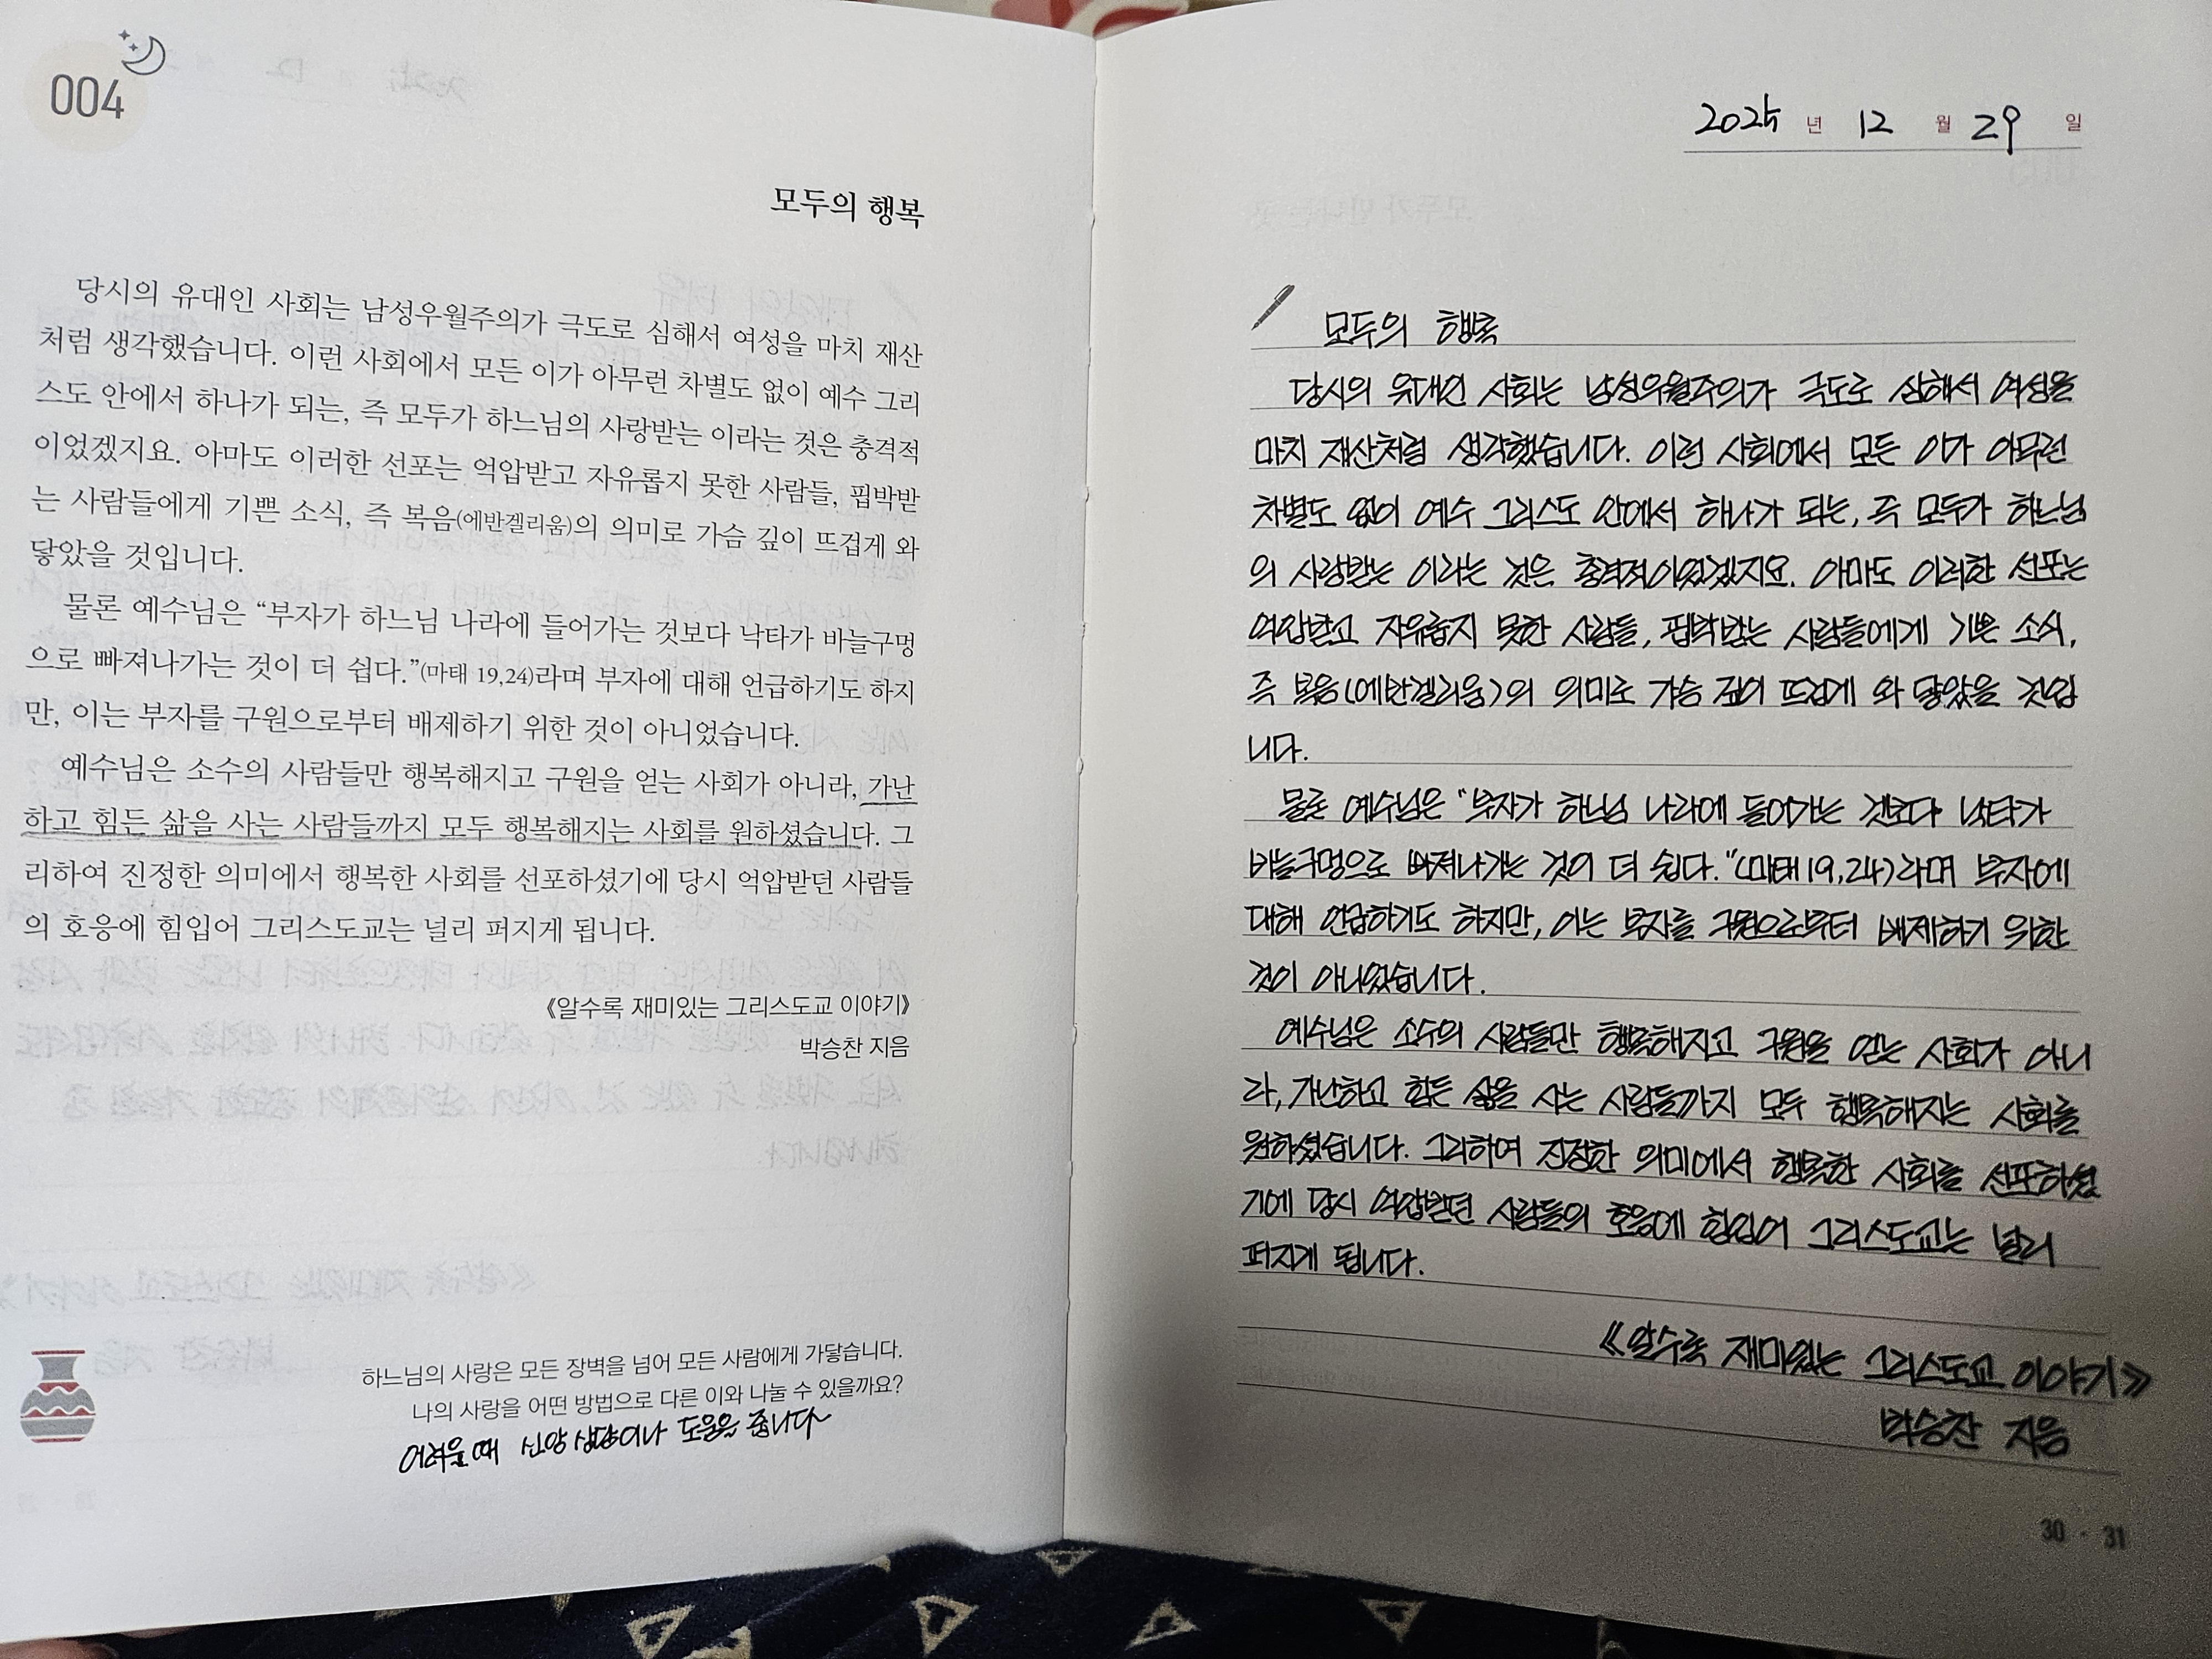 004
모두의 행복
당시의 유대인 사회는 남성우월주의가 극도로 심해서 여성을 마치 재산
처럼 생각했습니다. 이런 사회에서 모든 이가 아무런 차별도 없이 예수 그리
스도 안에서 하나가 되는, 즉 모두가 하느님의 사랑받는 이라는 것은 충격적
이었겠지요. 아마도 이러한 선포는 억압받고 자유롭지 못한 사람들, 핍박받
는 사람들에게 기쁜 소식, 즉 복음(에반겔리움)의 의미로 가슴 깊이 뜨겁게 와
닿았을 것입니다.
물론 예수님은 “부자가 하느님 나라에 들어가는 것보다 낙타가 바늘구멍
으로 빠져나가는 것이 더 쉽다.”(마태 19,24)라며 부자에 대해 언급하기도 하지
만, 이는 부자를 구원으로부터 배제하기 위한 것이 아니었습니다.
예수님은 소수의 사람들만 행복해지고 구원을 얻는 사회가 아니라, 가난
하고 힘든 삶을 사는 사람들까지 모두 행복해지는 사회를 원하셨습니다. 그
리하여 진정한 의미에서 행복한 사회를 선포하셨기에 당시 억압받던 사람들
의 호응에 힘입어 그리스도교는 널리 퍼지게 됩니다.
《알수록 재미있는 그리스도교 이야기》
박승찬 지음
하느님의 사랑은 모든 장벽을 넘어 모든 사람에게 가닿습니다.
나의 사랑을 어떤 방법으로 다른 이와 나눌 수 있을까요?
어려울 때 신앙 상담이나 도움을 줍니다~
2025 년 12 월 29 일
모두의 행복
당시의 유대인 사회는 남성우월주의가 극도로 심해서 여성을
마치 재산처럼 생각했습니다. 이런 사회에서 모든 이가 아무런
차별도 없이 예수 그리스도 안에서 하나가 되는, 즉 모두가 하느님
의 사랑받는 이라는 것은 충격적이었겠지요. 아마도 이러한 선포는
억압받고 자유롭지 못한 사람들, 핍박받는 사람들에게 기쁜 소식,
즉 복음(에반겔리움)의 의미로 가슴 깊이 뜨겁게 와 닿았을 것입
니다.
물론 예수님은 “부자가 하느님 나라에 들어가는 것보다 낙타가
바늘구멍으로 빠져나가는 것이 더 쉽다.”(마태 19,24)라며 부자에
대해 언급하기도 하지만, 이는 부자를 구원으로부터 배제하기 위한
것이 아니었습니다.
예수님은 소수의 사람들만 행복해지고 구원을 얻는 사회가 아니
라, 가난하고 힘든 삶을 사는 사람들까지 모두 행복해지는 사회를
원하셨습니다. 그리하여 진정한 의미에서 행복한 사회를 선포하셨
기에 당시 억압받던 사람들의 호응에 힘입어 그리스도교는 널리
퍼지게 됩니다.
《알수록 재미있는 그리스도교 이야기》
박승찬 지음
30 · 31